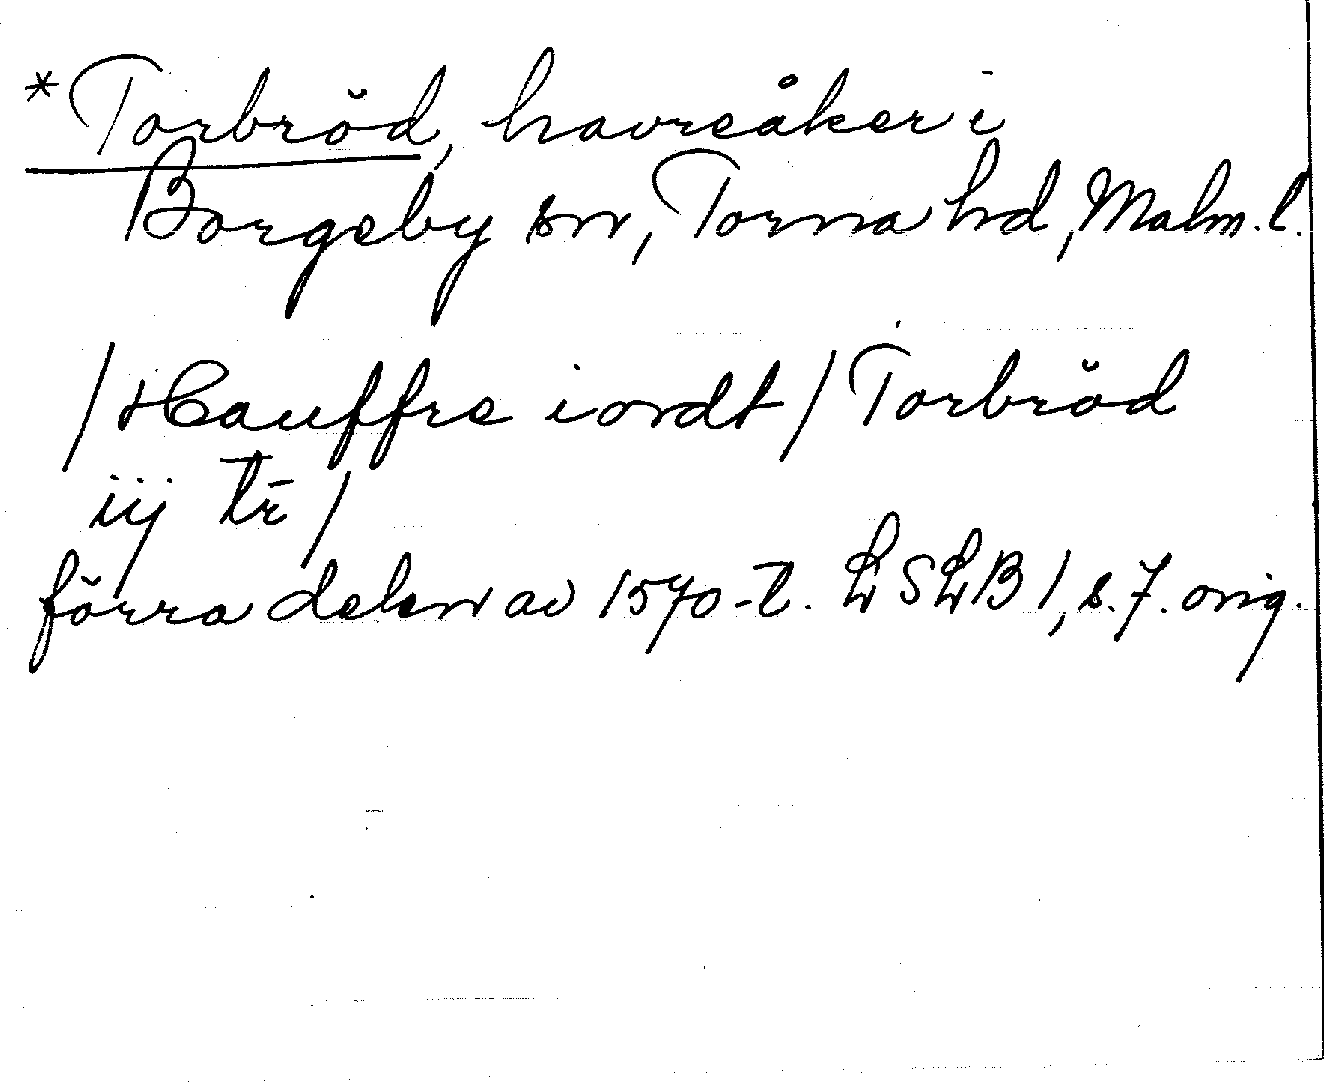 *Torbröd, havreåker i
Borgeby sn, Torna hd, Malm. l.
/Hauffre iordt/ Torbröd
iij tr̄ /
förra delen av 1570-t. LSLB 1, s. 7. orig.